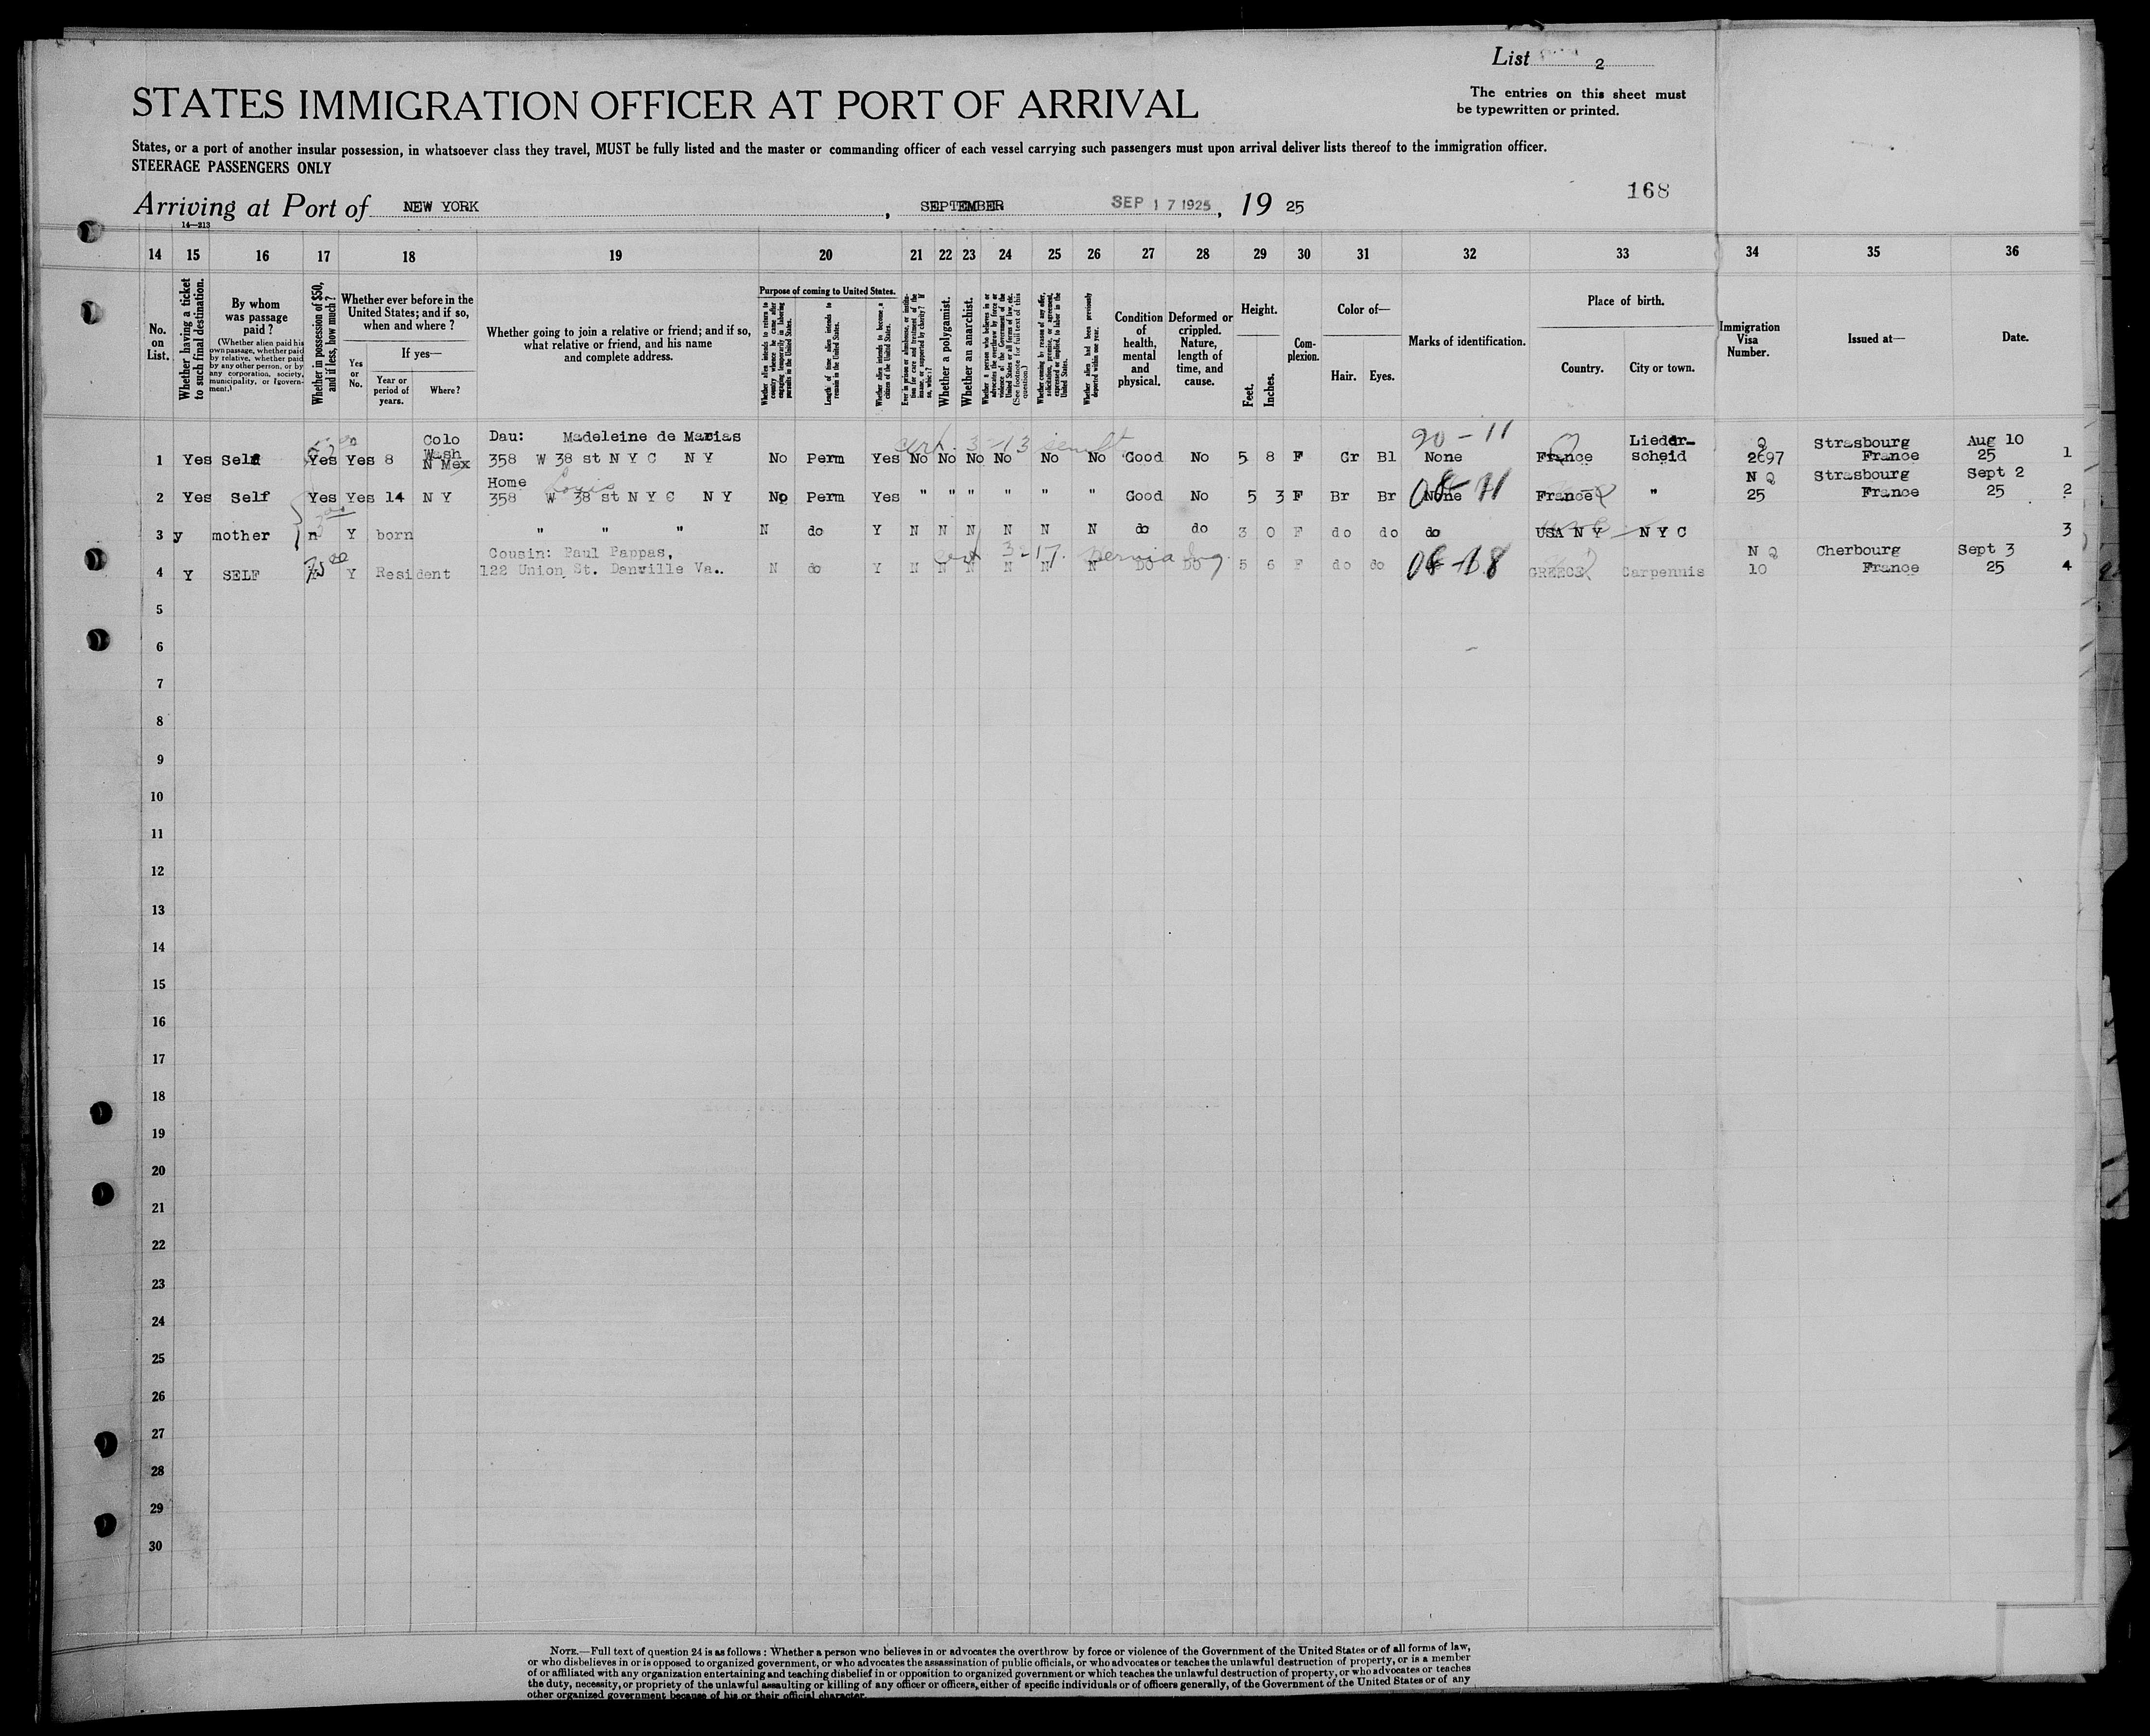 List 2
The entries on this sheet must
be typewritten or printed.
STATES IMMIGRATION OFFICER AT PORT OF ARRIVAL
States, or a port of another insular possession, in whatsoever class they travel, MUST be fully listed and the master or commanding officer of each vessel carrying such passengers must upon arrival deliver lists thereof to the immigration officer.
STEERAGE PASSENGERS ONLY
168
Arriving at Port of NEW YORK, SEPTEMBER SEP 17 1925, 19 25
14—213
14 15 16 17 18 19 20 21 22 23 24 25 26 27 28 29 30 31 32 33 34 35 36
No. on List.
Whether having a ticket to such final destination.
By whom was passage paid?
(Whether alien paid his own passage, whether paid by relative, whether paid by any other person, or by any corporation, society, municipality, or government.)
Whether in possession of $50, and if less, how much?
Whether ever before in the United States; and if so, when and where?
Yes or No.
If yes—
Year or period of years.
Where?
Whether going to join a relative or friend; and if so, what relative or friend, and his name and complete address.
Purpose of coming to United States.
Whether alien intends to return to country whence he came after engaging temporarily in laboring pursuits in the United States.
Length of time alien intends to remain in the United States.
Whether alien intends to become a citizen of the United States.
Ever in prison or almshouse, or institution for care and treatment of the insane, or supported by charity? If so, which?
Whether a polygamist.
Whether an anarchist.
Whether a person who believes in or advocates the overthrow by force or violence of the Government of the United States or all forms of law, etc. (See footnote for full text of this question.)
Whether coming by reason of any offer, solicitation, promise, or agreement, expressed or implied, to labor in the United States.
Whether alien had been previously deported within one year.
Condition of health, mental and physical.
Deformed or crippled. Nature, length of time, and cause.
Height.
Feet.
Inches.
Complexion.
Color of—
Hair.
Eyes.
Marks of identification.
Place of birth.
Country.
City or town.
Immigration Visa Number.
Issued at—
Date.
Colo Dau: Madeleine de Marias cert. 3-13 90-11 Lieder- Q Strasbourg Aug 10
Wash
1 Yes Self Yes Yes 8 N Mex 358 W 38 st N Y C N Y No Perm Yes No No No No No No Good No 5 8 F Gr Bl None France scheid 2697 France 25 1
Home Louis N Q Strasbourg Sept 2
2 Yes Self Yes Yes 14 N Y 358 W 38 st N Y C N Y No Perm Yes " " " " " " Good No 5 3 F Br Br None France " 25 France 25 2
3 y mother n Y born " " " N do Y N N N N N N do do 3 0 F do do do USA N Y N Y C 3
Cousin: Paul Pappas, 3-17. N Q Cherbourg Sept 3
4 Y SELF Y Resident 122 Union St. Danville Va.. N do Y N N N N N N DO DO 5 6 F do do GREECE Carpennis 10 France 25 4
5
6
7
8
9
10
11
12
13
14
15
16
17
18
19
20
21
22
23
24
25
26
27
28
29
30
NOTE.—Full text of question 24 is as follows: Whether a person who believes in or advocates the overthrow by force or violence of the Government of the United States or of all forms of law,
or who disbelieves in or is opposed to organized government, or who advocates the assassination of public officials, or who advocates or teaches the unlawful destruction of property, or is a member
of or affiliated with any organization entertaining and teaching disbelief in or opposition to organized government or which teaches the unlawful destruction of property, or who advocates or teaches
the duty, necessity, or propriety of the unlawful assaulting or killing of any officer or officers, either of specific individuals or of officers generally, of the Government of the United States or of any
other organized government because of his or their official character.